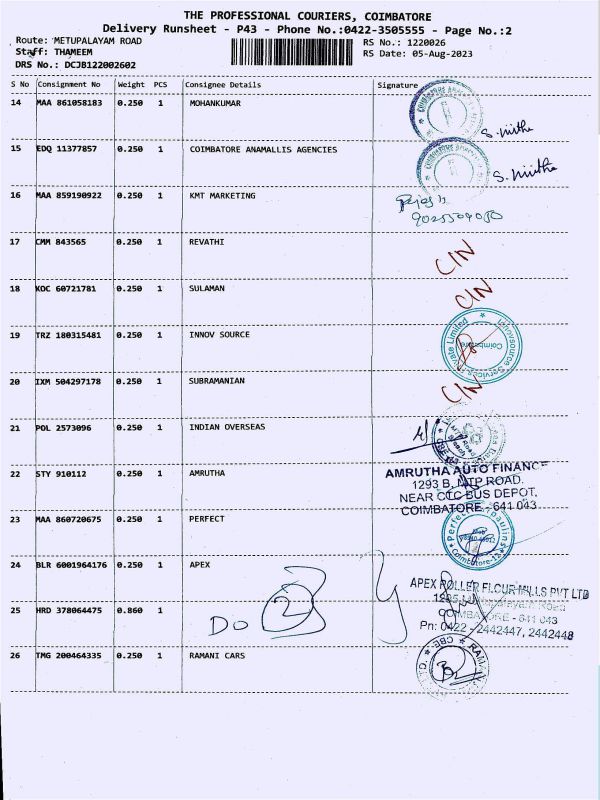 THE PROFESSIONAL COURIERS, COIMBATORE
Delivery Runsheet - P43 - Phone No.:0422-3505555 - Page No.:2
Route: METUPALAYAM ROAD
RS No.: 1220026
Staff: THAMEEM
RS Date: 05-Aug-2023
DRS No.: DCJB122002602
S No Consignment No Weight PCS Consignee Details Signature
14 MAA 861058183 0.250 1 MOHANKUMAR
15 EDQ 11377857 0.250 1 COIMBATORE ANAMALLIS AGENCIES
16 MAA 859190922 0.250 1 KMT MARKETING
17 CMM 843565 0.250 1 REVATHI CIN
18 KOC 60721781 0.250 1 SULAMAN CIN
19 TRZ 180315481 0.250 1 INNOV SOURCE
Innovsource Services Private Limited
Coimbatore
20 IXM 504297178 0.250 1 SUBRAMANIAN CIN
21 POL 2573096 0.250 1 INDIAN OVERSEAS
22 STY 910112 0.250 1 AMRUTHA
AMRUTHA AUTO FINANCE
1293 B, MTP ROAD.
NEAR CTC BUS DEPOT,
COIMBATORE - 641 043
23 MAA 860720675 0.250 1 PERFECT
Coimbatore-12
24 BLR 6001964176 0.250 1 APEX
APEX ROLLER FLOUR MILLS PVT LTD
COIMBATORE - 641 043
Pn: 0422 - 2442447, 2442448
25 HRD 378064475 0.860 1 Do 2
26 TMG 200464335 0.250 1 RAMANI CARS
CBE